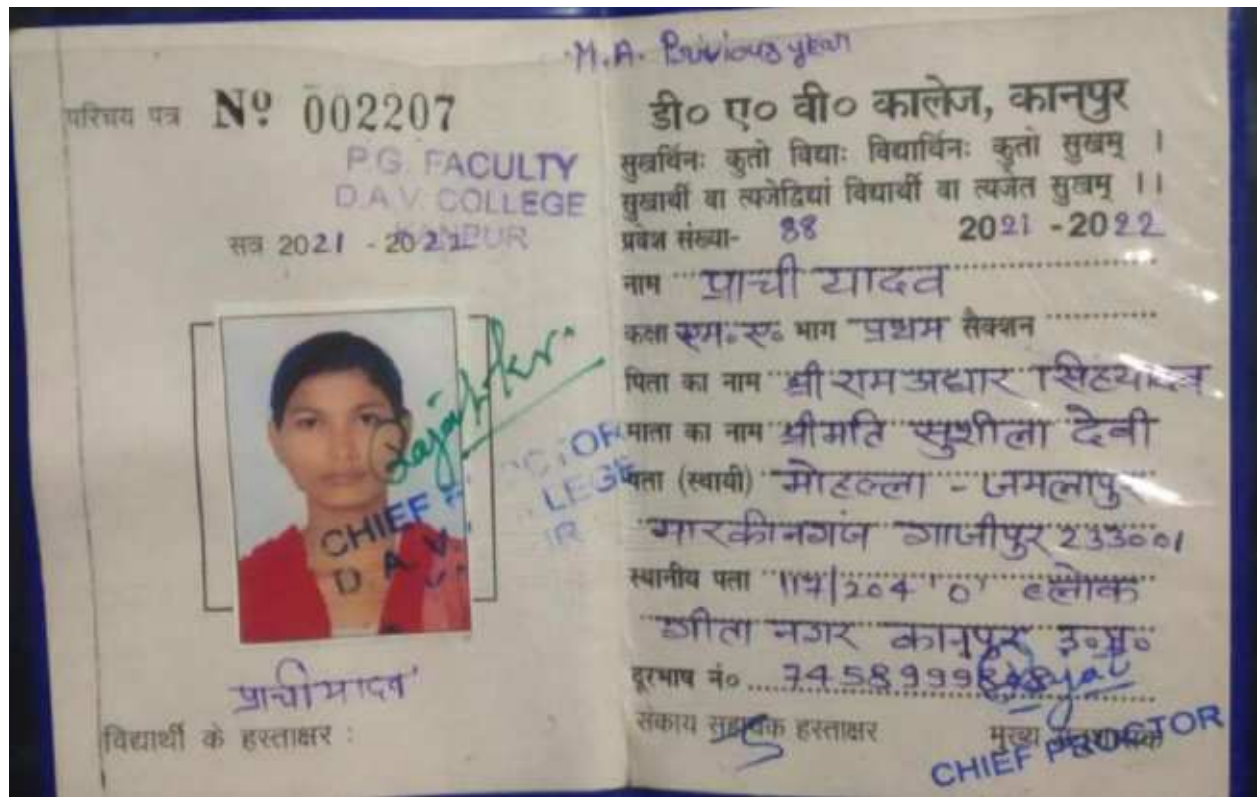 M.A. Privious year
परिचय पत्र Nº 002207
P.G. FACULTY
D.A.V. COLLEGE
KANPUR
सत्र 2021 - 2022
CHIEF
D A V
विद्यार्थी के हस्ताक्षर :
प्राची यादव
डी० ए० वी० कालेज, कानपुर
सुखार्थिनः कुतो विद्याः विद्यार्थिनः कुतो सुखम् ।
सुखार्थी वा त्यजेद्विद्यां विद्यार्थी वा त्यजेत सुखम् ।।
प्रवेश संख्या- 88 2021 - 2022
नाम प्राची यादव
कक्षा एम॰ए॰ भाग प्रथम सैक्शन
पिता का नाम श्री राम अद्यार सिंह यादव
माता का नाम श्रीमति सुशीला देवी
पता (स्थायी) मोहल्ला - जमलापुर
मारकीनगंज गाजीपुर 233001
स्थानीय पता 117/204 'O' ब्लोक
गीता नगर कानपुर उ॰प्र॰
दूरभाष नं० 7458999
संकाय सहायक हस्ताक्षर मुख्य
CHIEF PROCTOR